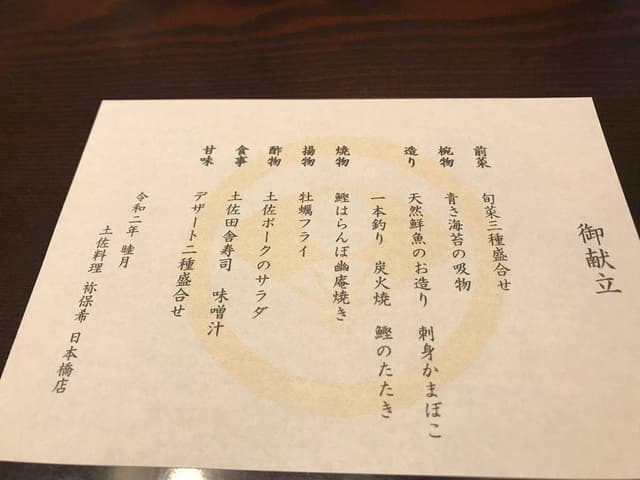 御献立
前菜 旬菜三種盛合せ
椀物 青さ海苔の吸物
造り 天然鮮魚のお造り 刺身かまぼこ
一本釣り 炭火焼 鰹のたたき
焼物 鰹はらんぼ幽庵焼き
揚物 牡蠣フライ
酢物 土佐ポークのサラダ
食事 土佐田舎寿司 味噌汁
甘味 デザート二種盛合せ
令和二年 睦月
土佐料理 祢保希 日本橋店